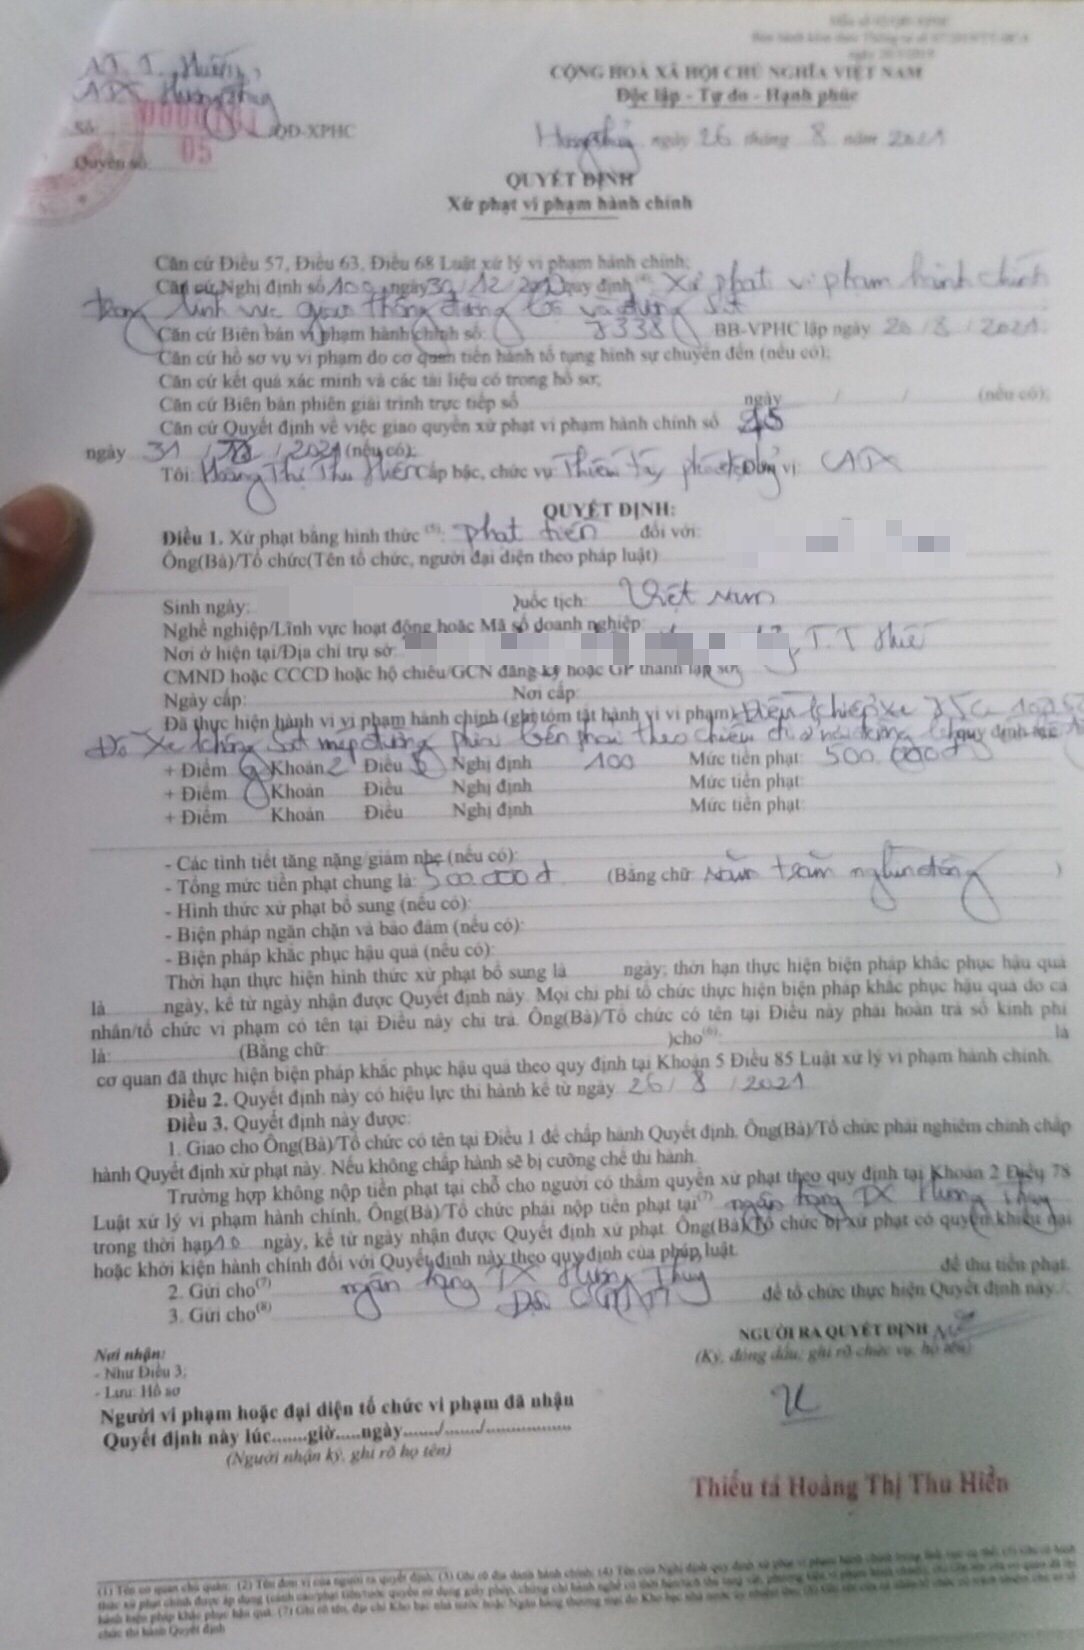 CỘNG HOÀ XÃ HỘI CHỦ NGHĨA VIỆT NAM
Độc lập - Tự do - Hạnh phúc
Số: QĐ-XPHC
Quyển số: 05
ngày 26 tháng 8 năm 2021
QUYẾT ĐỊNH
Xử phạt vi phạm hành chính
Căn cứ Điều 57, Điều 63, Điều 68 Luật xử lý vi phạm hành chính;
Căn cứ Nghị định số 100 ngày 30/12/2019 quy định (4) Xử phạt vi phạm hành chính
trong lĩnh vực giao thông đường bộ và đường sắt
Căn cứ Biên bản vi phạm hành chính số: BB-VPHC lập ngày 26/8/2021
Căn cứ hồ sơ vụ vi phạm do cơ quan tiến hành tố tụng hình sự chuyển đến (nếu có);
Căn cứ kết quả xác minh và các tài liệu có trong hồ sơ;
Căn cứ Biên bản phiên giải trình trực tiếp số ngày / / (nếu có);
Căn cứ Quyết định về việc giao quyền xử phạt vi phạm hành chính số
ngày 31 / / 2021 (nếu có);
Tôi: Hoàng Thị Thu Hiền Cấp bậc, chức vụ: Thiếu tá, vị: CATX
QUYẾT ĐỊNH:
Điều 1. Xử phạt bằng hình thức (5): phạt tiền đối với:
Ông(Bà)/Tổ chức(Tên tổ chức, người đại diện theo pháp luật)
Sinh ngày: Quốc tịch: Việt Nam
Nghề nghiệp/Lĩnh vực hoạt động hoặc Mã số doanh nghiệp:
Nơi ở hiện tại/Địa chỉ trụ sở: T.T Huế
CMND hoặc CCCD hoặc hộ chiếu/GCN đăng ký hoặc GP thành lập số:
Ngày cấp: Nơi cấp:
Đã thực hiện hành vi vi phạm hành chính (ghi tóm tắt hành vi vi phạm): Điều khiển xe
Đỗ xe không sát mép đường phía bên phải theo chiều đi ở nơi đường quy định tại
+ Điểm g Khoản 2 Điều 5 Nghị định 100 Mức tiền phạt: 500.000đ
+ Điểm Khoản Điều Nghị định Mức tiền phạt:
+ Điểm Khoản Điều Nghị định Mức tiền phạt:
- Các tình tiết tăng nặng/giảm nhẹ (nếu có):
- Tổng mức tiền phạt chung là: 500.000đ (Bằng chữ: Năm trăm nghìn đồng )
- Hình thức xử phạt bổ sung (nếu có):
- Biện pháp ngăn chặn và bảo đảm (nếu có):
- Biện pháp khắc phục hậu quả (nếu có):
Thời hạn thực hiện hình thức xử phạt bổ sung là ngày; thời hạn thực hiện biện pháp khắc phục hậu quả
là ngày, kể từ ngày nhận được Quyết định này. Mọi chi phí tổ chức thực hiện biện pháp khắc phục hậu quả do cá
nhân/tổ chức vi phạm có tên tại Điều này chi trả. Ông(Bà)/Tổ chức có tên tại Điều này phải hoàn trả số kinh phí
là: (Bằng chữ: )cho(6): là
cơ quan đã thực hiện biện pháp khắc phục hậu quả theo quy định tại Khoản 5 Điều 85 Luật xử lý vi phạm hành chính.
Điều 2. Quyết định này có hiệu lực thi hành kể từ ngày 26/8/2021
Điều 3. Quyết định này được:
1. Giao cho Ông(Bà)/Tổ chức có tên tại Điều 1 để chấp hành Quyết định. Ông(Bà)/Tổ chức phải nghiêm chỉnh chấp
hành Quyết định xử phạt này. Nếu không chấp hành sẽ bị cưỡng chế thi hành.
Trường hợp không nộp tiền phạt tại chỗ cho người có thẩm quyền xử phạt theo quy định tại Khoản 2 Điều 78
Luật xử lý vi phạm hành chính, Ông(Bà)/Tổ chức phải nộp tiền phạt tại(7) ngân hàng TX Hương Thủy
trong thời hạn 10 ngày, kể từ ngày nhận được Quyết định xử phạt. Ông(Bà)/Tổ chức bị xử phạt có quyền khiếu nại
hoặc khởi kiện hành chính đối với Quyết định này theo quy định của pháp luật.
2. Gửi cho(7) ngân hàng TX Hương Thủy để thu tiền phạt.
3. Gửi cho(8) để tổ chức thực hiện Quyết định này.
NGƯỜI RA QUYẾT ĐỊNH
(Ký, đóng dấu; ghi rõ chức vụ, họ tên)
Nơi nhận:
- Như Điều 3;
- Lưu: Hồ sơ
Người vi phạm hoặc đại diện tổ chức vi phạm đã nhận
Quyết định này lúc.......giờ.....ngày......./......./.................
(Người nhận ký, ghi rõ họ tên)
Thiếu tá Hoàng Thị Thu Hiền